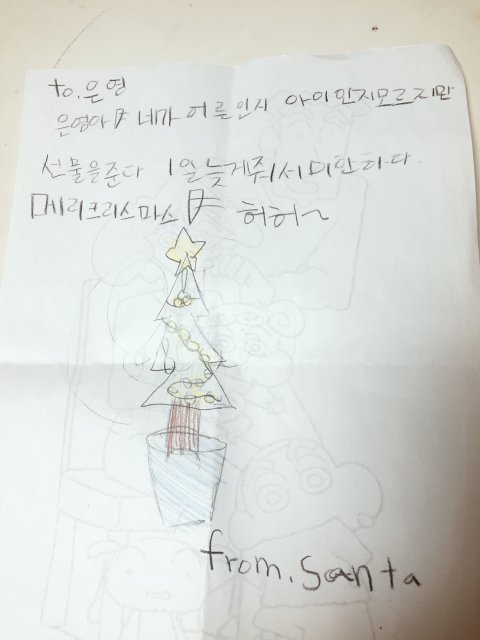 to.은연
은영아♬ 네가 어른인지 아이인지모르지만
선물을준다 1일늦게줘서미안하다.
메리크리스마스♬ 허허~
from. Santa